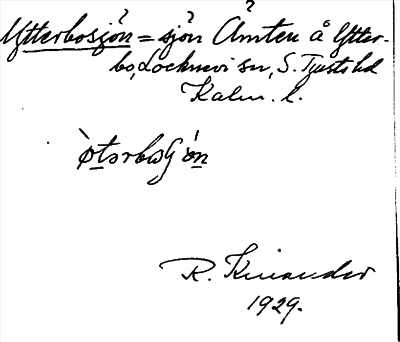 Ytterbosjön = sjön Åmten å Ytter-
bo, Locknevi sn, S. Tjusts hd
Kalm. l.
R. Kinander
1929.